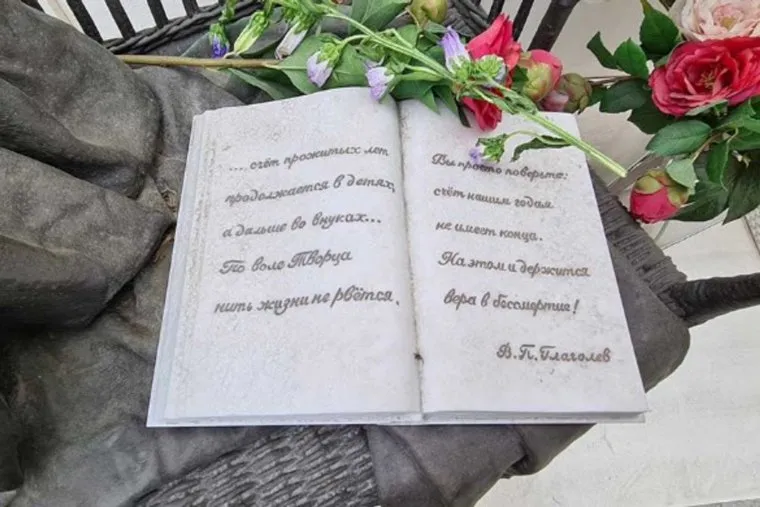 ...счёт прожитых лет
продолжается в детях,
а дальше во внуках...
По воле Творца
нить жизни не рвётся.
Вы просто поверьте:
счёт нашим годам
не имеет конца.
На этом и держится
вера в бессмертие!
В. П. Глаголев